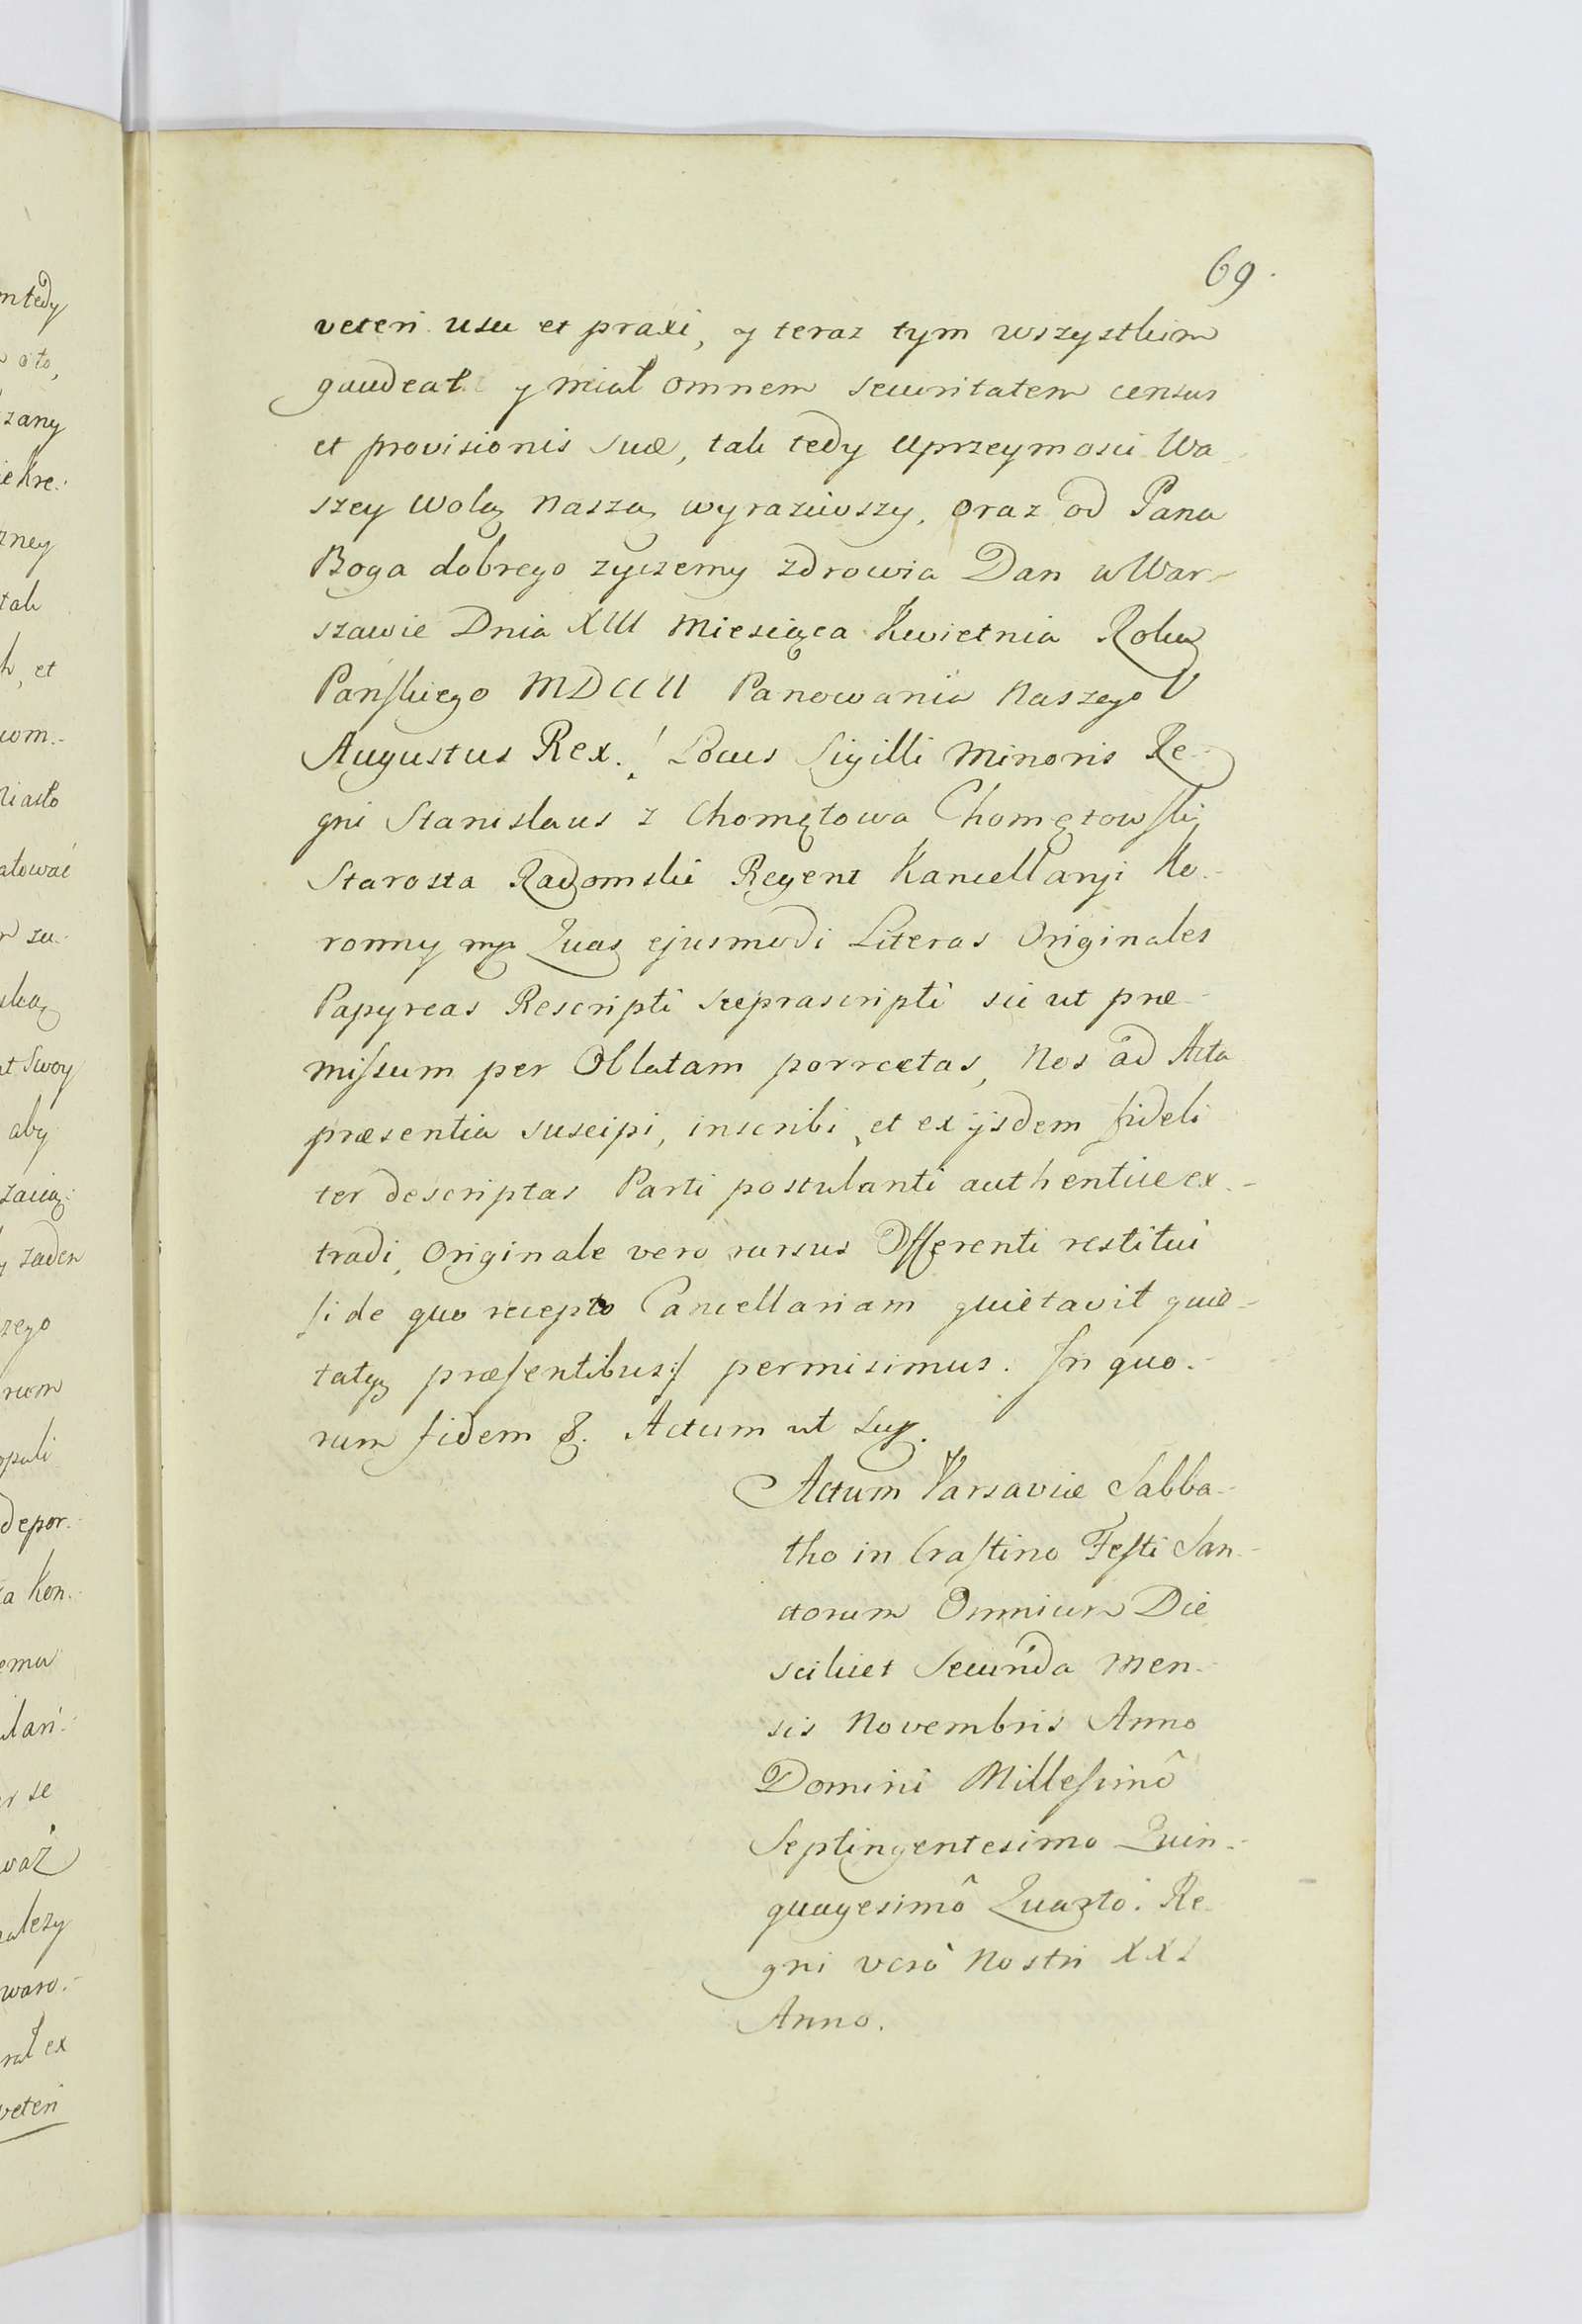 69.
veteri usu et praxi, y teraz tym wszystkim
gaudeat y miał omnem securitatem census
et provisionis suæ, tak tedy Uprzeymosci Wa-
szey wolą naszą wyraziwszy, oraz od Pana
Boga dobrego zyczemy zdrowia Dan w War-
szawie Dnia XIII Miesiąca Kwietnia Roku
Pańskiego MDCCII Panowania Naszego V
Augustus Rex. Locus Sigilli Minoris Re-
gni Stanislaus z Chomętowa Chomętowski
Starosta Radomski Regent Kancellaryi Ko-
ronny mp Quas ejusmodi Literas Originales
Papyreas Rescripti suprascripti sic ut præ-
missum per Oblatam porrectas, Nos ad Acta
præsentia suscipi, inscribi, et ex ijsdem fideli
ter descriptas Parti postulanti authentice ex-
tradi, Originale vero rursus Offerenti restitui
/: de quo recepto Cancellariam quietavit quie-
tatq præsentibus :/ permisimus. In quo-
rum fidem &. Actum ut sup.
Actum Varsaviæ Sabba-
tho in Crastino Festi San-
ctorum Omnium Die
scilicet Secunda Men-
sis Novembris Anno
Domini Millesimô
Septingentesimo Quin-
quagesimô Quarto. Re-
gni verò Nostri XXI
Anno.
mtedy
o to,
zany
zney
tak
, et
Miasto
at Swoy
aby
zaden
zego
num
depor-
emu
er se
waro-
rat ex
veteri